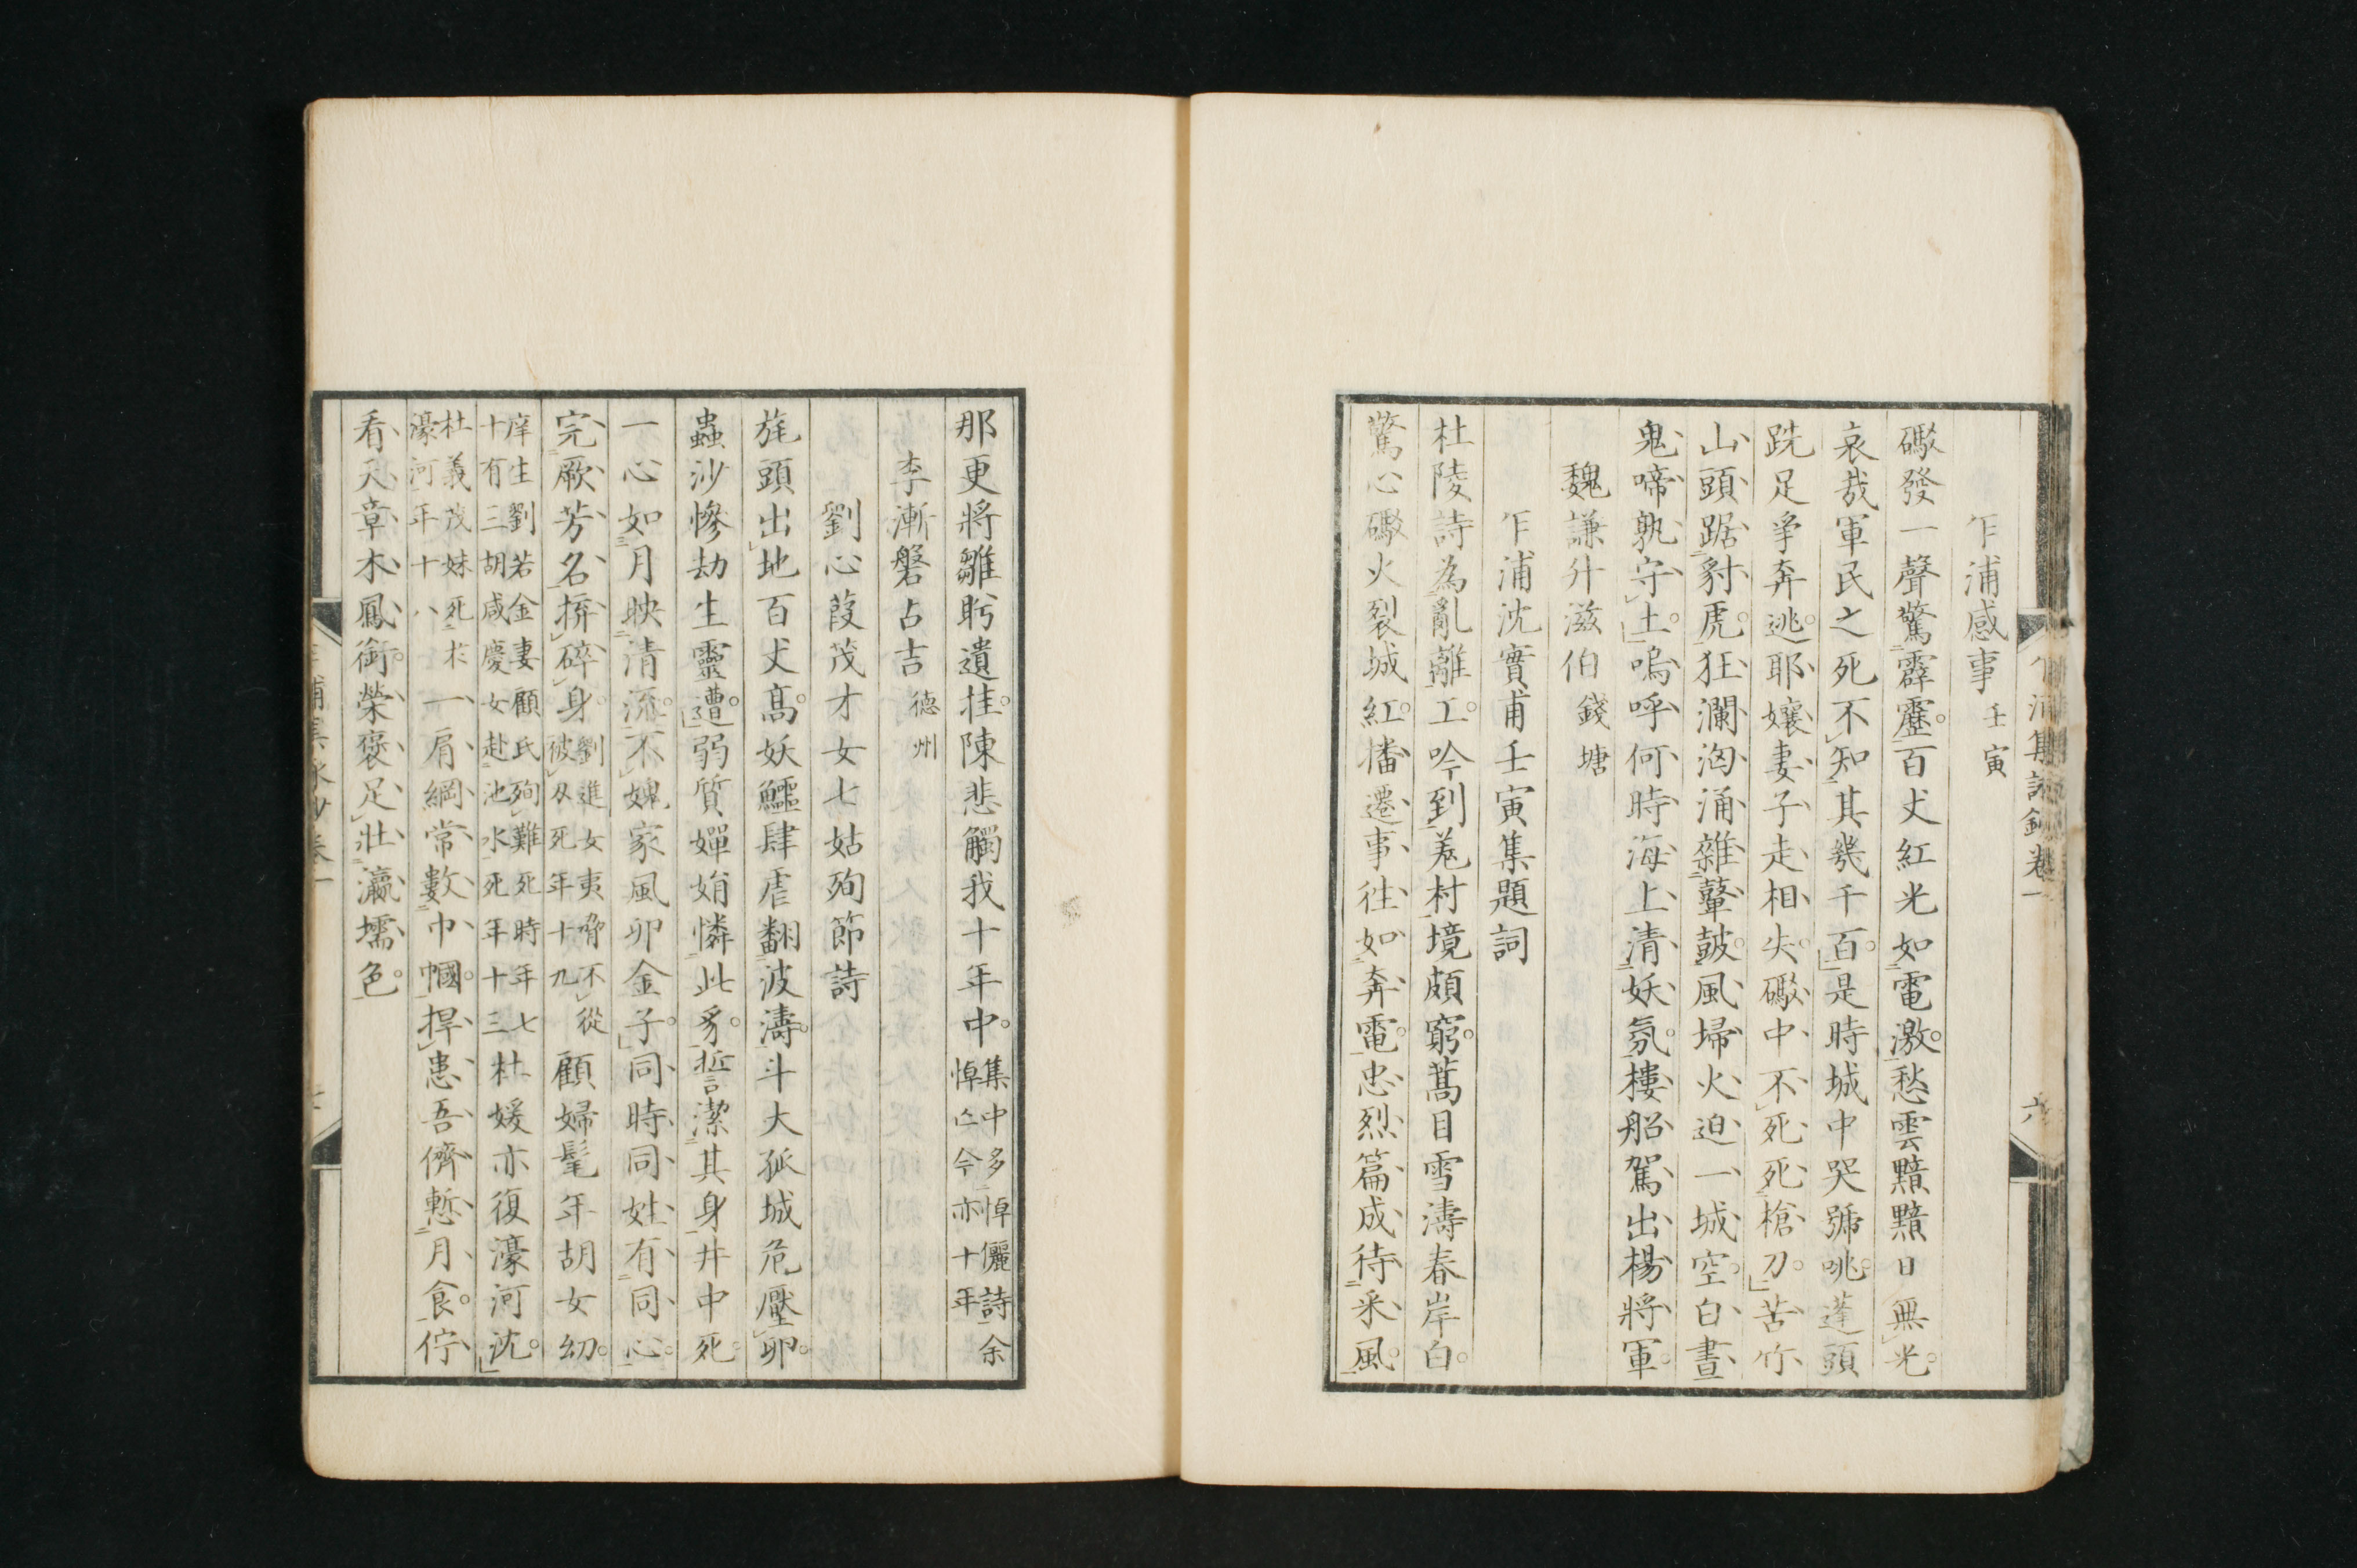 乍浦集詠鈔卷一
六
乍浦感事壬寅
礮發一聲驚霹靂百丈紅光如電激愁雲黯黯日無光
哀哉軍民之死不知其幾千百是時城中哭號咷蓬頭
跣足爭奔逃耶孃妻子走相失礮中不死死槍刀苦竹
山頭踞豺虎狂瀾洶涌雜鼙鼓風埽火迫一城空白晝
鬼啼孰守土嗚呼何時海上清妖氛樓船駕出楊將軍
魏謙升滋伯錢塘
乍浦沈實甫壬寅集題詞
杜陵詩為亂離工吟到羗村境頗窮蒿目雪濤春岸白
驚心礮火裂城紅播遷事往如奔電忠烈篇成待采風
那更將雛眄遺挂陳悲觸我十年中集中多悼儷詩余
悼亡今亦十年
李漸磐占吉德州
劉心葭茂才女七姑殉節詩
旄頭出地百丈高妖鱷肆虐翻波濤斗大孤城危壓卵
蟲沙慘劫生靈遭弱質嬋娟憐此豸誓潔其身井中死
一心如月映清流不媿家風卯金子同時同姓有同心
完厥芳名拚碎身劉進女夷脅不從
被刃死年十九顧婦髦年胡女幼
庠生劉若金妻顧氏殉難死時年七
十有三胡咸慶女赴池水死年十三杜媛亦復濠河沈
杜義茂妹死於
濠河年十八一肩綱常數巾幗捍患吾儕慙月食佇
看天章木鳳銜榮褒足壯瀛壖色